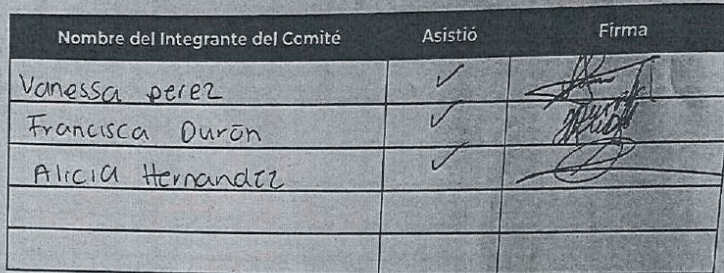 Nombre del Integrante del Comité Asistió Firma
Vanessa perez ✓
Francisca Durōn ✓
Alicia Hernandez ✓